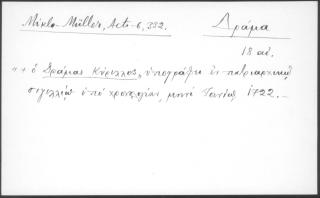 Mikl.-Müller, Acta 6, 332.
Δράμα
18 αἰ.
"+ ὁ Δράμας Κύριλλος, ὑπογράφει ἐν πατριαρχικῷ
σιγιλλίῳ ὑπὸ χρονολογίαν, μηνὶ Ἰουνίῳ 1722. —